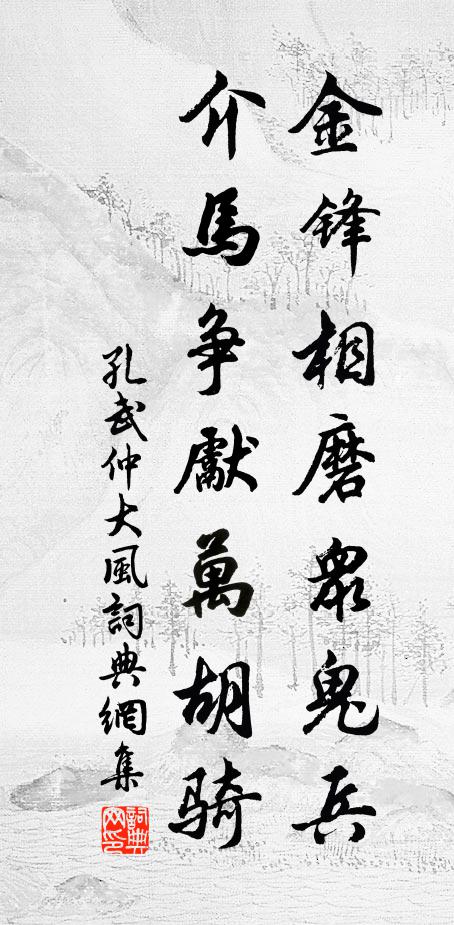 金鋒相磨衆鬼兵
介馬争獻萬胡騎
孔武仲大風詞典網集
詞典网印